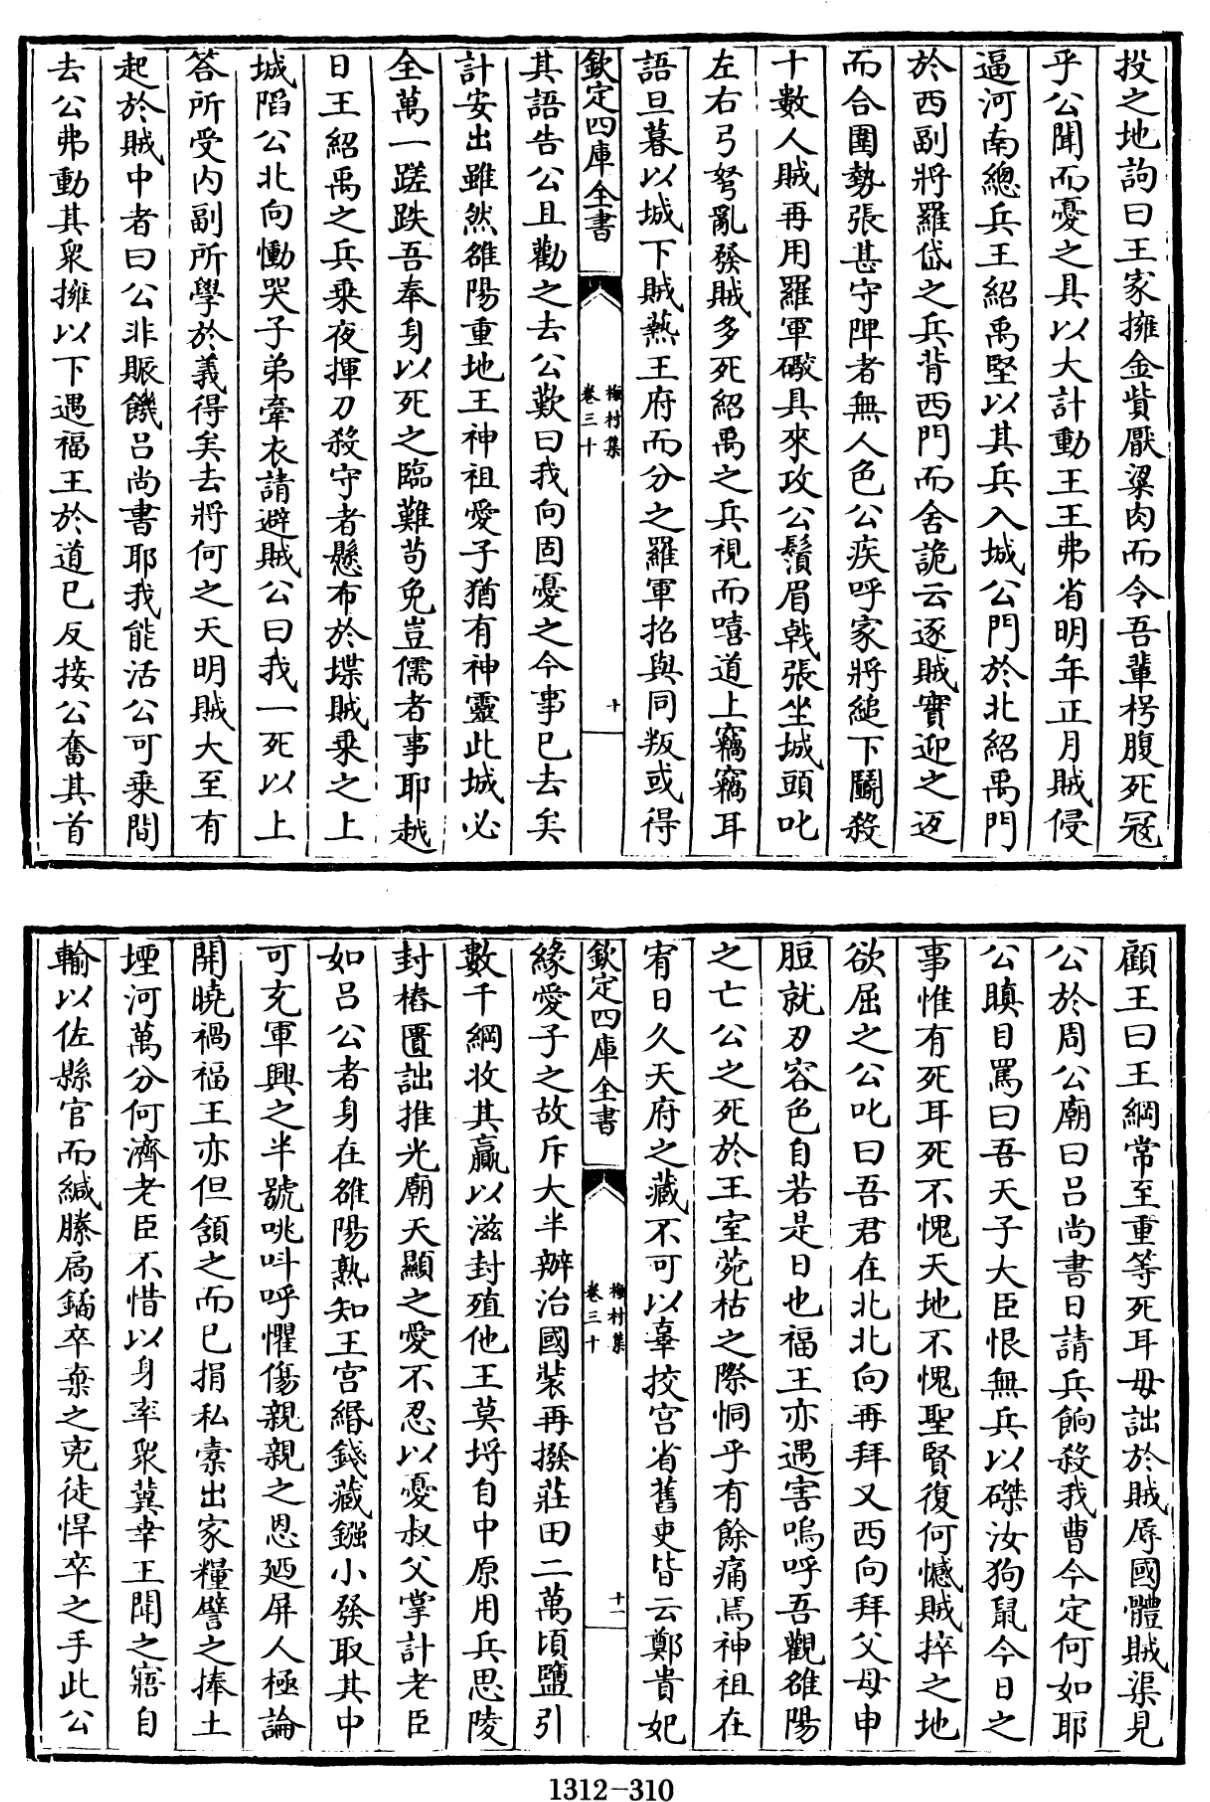 投之地訽曰王家擁金貲厭粱肉而令吾輩枵腹死冦
乎公聞而憂之具以大計動王王弗省明年正月賊侵
逼河南總兵王紹禹堅以其兵入城公門於北紹禹門
於西副將羅岱之兵背西門而舍詭云逐賊實迎之返
而合圍勢張甚守陴者無人色公疾呼家將縋下鬬殺
十數人賊再用羅軍礮具來攻公鬚眉戟張坐城頭叱
左右弓弩亂發賊多死紹禹之兵視而嘻道上竊竊耳
語旦暮以城下賊爇王府而分之羅軍招與同叛或得
欽定四庫全書
梅村集
卷三十
十
其語告公且勸之去公歎曰我向固憂之今事已去矣
計安出雖然雒陽重地王神祖愛子猶有神靈此城必
全萬一蹉跌吾奉身以死之臨難茍免豈儒者事耶越
日王紹禹之兵乗夜揮刀殺守者懸布於堞賊乗之上
城陷公北向慟哭子弟牽衣請避賊公曰我一死以上
答所受内副所學於義得矣去將何之天明賊大至有
起於賊中者曰公非賑饑吕尚書耶我能活公可乗間
去公弗動其衆擁以下遇福王於道已反接公奮其首
顧王曰王綱常至重等死耳毋詘於賊辱國體賊渠見
公於周公廟曰吕尚書日請兵餉殺我曹今定何如耶
公瞋目罵曰吾天子大臣恨無兵以磔汝狗鼠今日之
事惟有死耳死不愧天地不愧聖賢復何憾賊捽之地
欲屈之公叱曰吾君在北北向再拜又西向拜父母申
脰就刃容色自若是日也福王亦遇害嗚呼吾觀雒陽
之亡公之死於王室菀枯之際恫乎有餘痛焉神祖在
宥日久天府之藏不可以辜挍宫省舊吏皆云鄭貴妃
欽定四庫全書
梅村集
卷三十
十一
緣愛子之故斥大半辦治國裝再撥莊田二萬頃鹽引
數千綱收其贏以滋封殖他王莫埒自中原用兵思陵
封樁匱詘推光廟天顯之愛不忍以憂叔父掌計老臣
如吕公者身在雒陽熟知王宫緡錢藏鏹小發取其中
可充軍興之半號咷呌呼懼傷親親之恩廼屏人極論
開曉禍福王亦但頷之而已捐私槖出家糧譬之捧土
堙河萬分何濟老臣不惜以身率衆冀幸王聞之寤自
輸以佐縣官而緘縢扃鐍卒棄之兇徒悍卒之手此公
1312-310